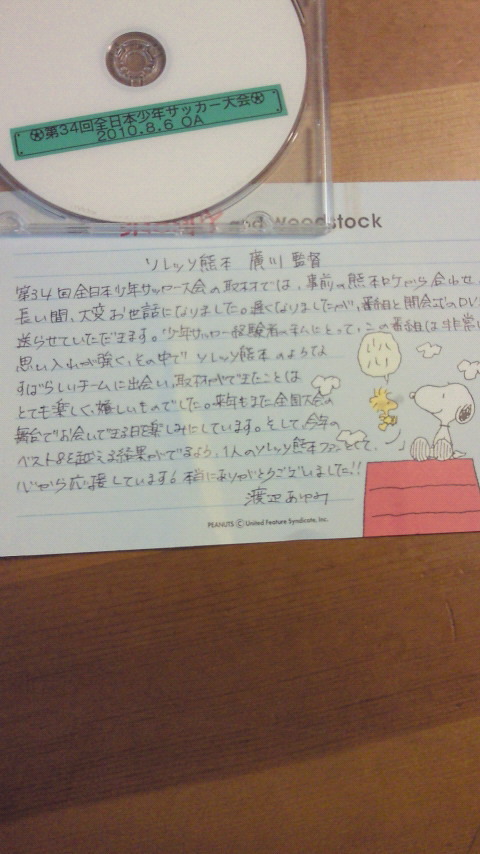 第34回全日本少年サッカー大会
2010.8.6 OA
and woodstock
ソレッソ熊本 廣川監督
第34回全日本少年サッカー大会の取材では、事前の熊本ロケから合わせ、
長い間、大変お世話になりました。遅くなりましたが、番組と開会式のDV
送らせていただきます。少年サッカー経験者の私にとって、この番組は非常に
思い入れが強く、その中で ソレッソ熊本のような
すばらしいチームに出会い、取材ができたことは
とても楽しく、嬉しいものでした。来年もまた全国大会の
舞台でお会いできる日を楽しみにしています。そして、今年の
ベスト8を超える結果がでるよう、1人のソレッソ熊本ファンとして、
心から応援しています。本当にありがとうございました!!
渡辺あゆみ
PEANUTS © United Feature Syndicate, Inc.